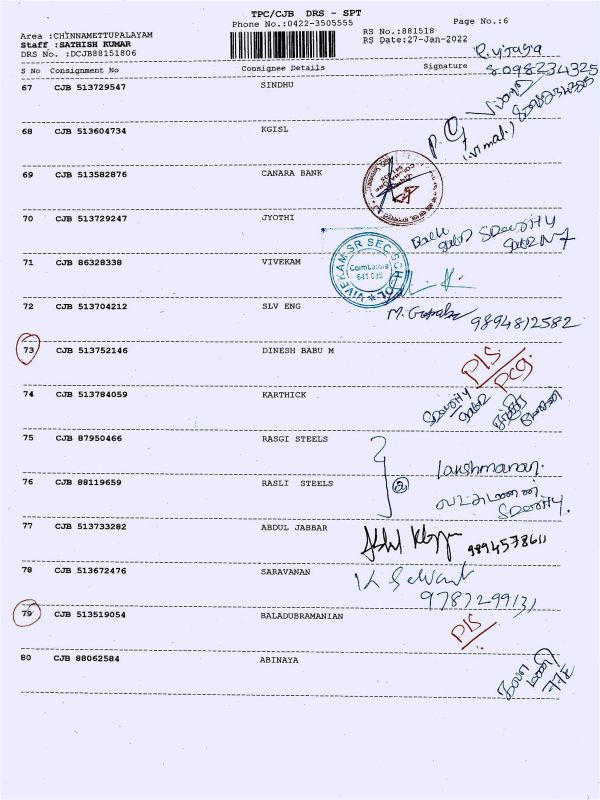 TPC/CJB DRS - SPT
Phone No.:0422-3505555
Page No.:6
Area :CHINNAMETTUPALAYAM
Staff :SATHISH KUMAR
DRS No. :DCJB88151806
RS No.:881518
RS Date:27-Jan-2022
S No Consignment No Consignee Details Signature
8098234325
67 CJB 513729547 SINDHU
68 CJB 513604734 KGISL
(vimal.)
69 CJB 513582876 CANARA BANK
70 CJB 513729247 JYOTHI
71 CJB 86328338 VIVEKAM
VIVEKAM SR SEC SCHOOL
Coimbatore
641 035
72 CJB 513704212 SLV ENG
9894812582
73 CJB 513752146 DINESH BABU M
PIS
74 CJB 513784059 KARTHICK
75 CJB 87950466 RASGI STEELS
76 CJB 88119659 RASLI STEELS
②
Lakshmanan.
77 CJB 513733282 ABDUL JABBAR
9894578611
78 CJB 513672476 SARAVANAN
79 CJB 513519054 BALADUBRAMANIAN
PIS
80 CJB 88062584 ABINAYA